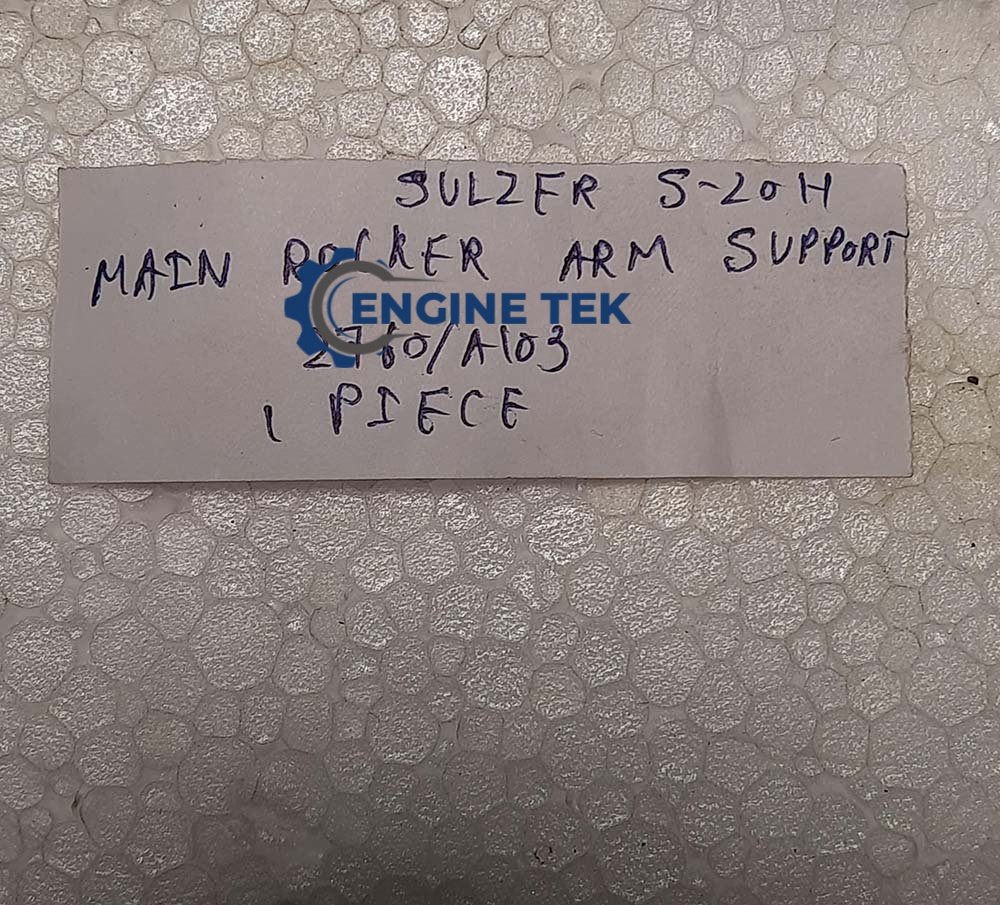 SULZER S-20H
MAIN ROCKER ARM SUPPORT
ENGINE TEK
2760/A103
1 PIECE